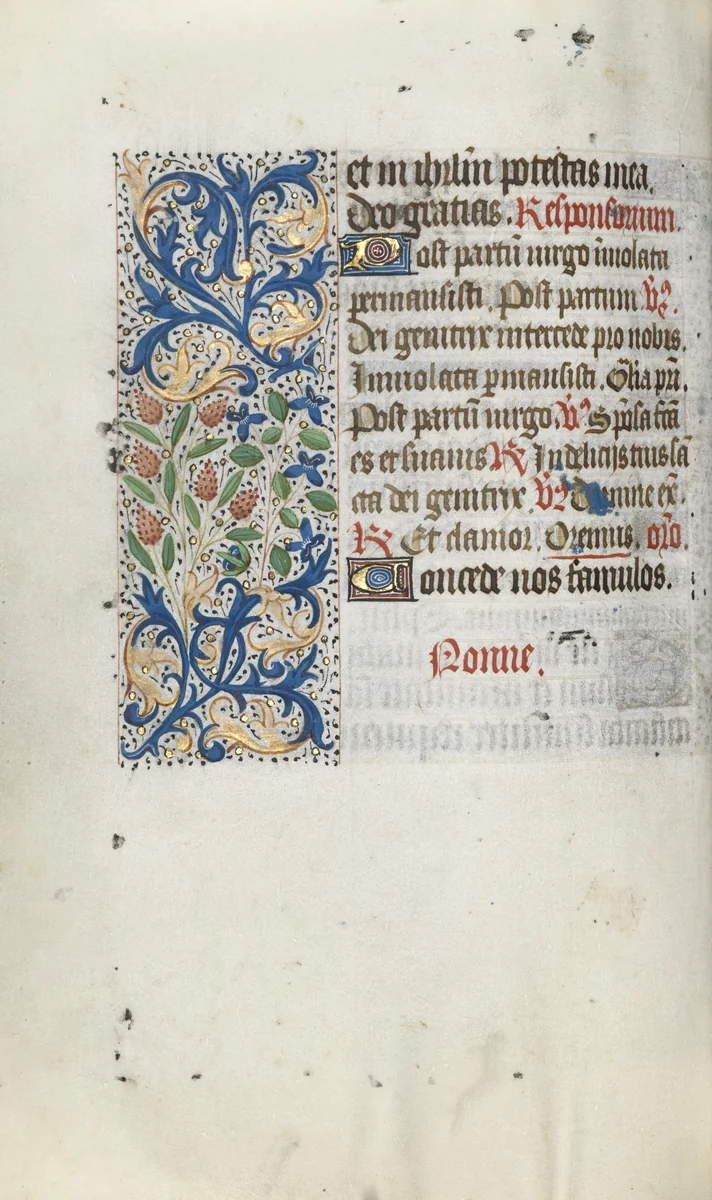 et in ihrl̄m potestas mea.
deo gratias. Responsorium.
Post partū uirgo īuiolata
permansisti. Post partum. V̄.
Dei genitrix intercede pro nobis.
Inuiolata pmansisti. Gl̄ia pr̄i.
Post partū uirgo. V̄. Spōsa fc̄a
es et suauis R̄ In delicijs tuis sā
cta dei genitrix. V̄ Domine ex̄.
R̄ Et clamor. Oremus. or̄o.
Concede nos famulos.
Nonne.